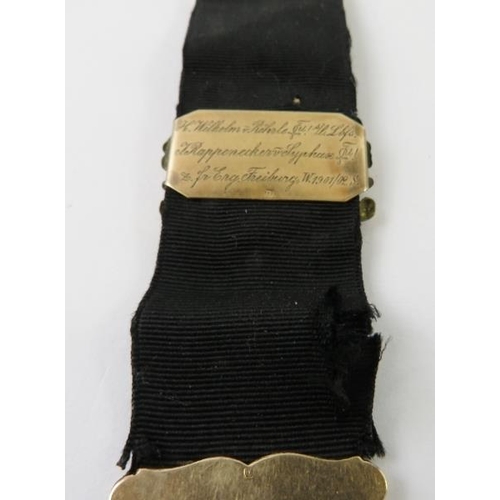 H. Wilhelm v. Röhrle
F. Rappenecker v. Syphax
z. fr. Erg. Freiburg, W. 1901/02.